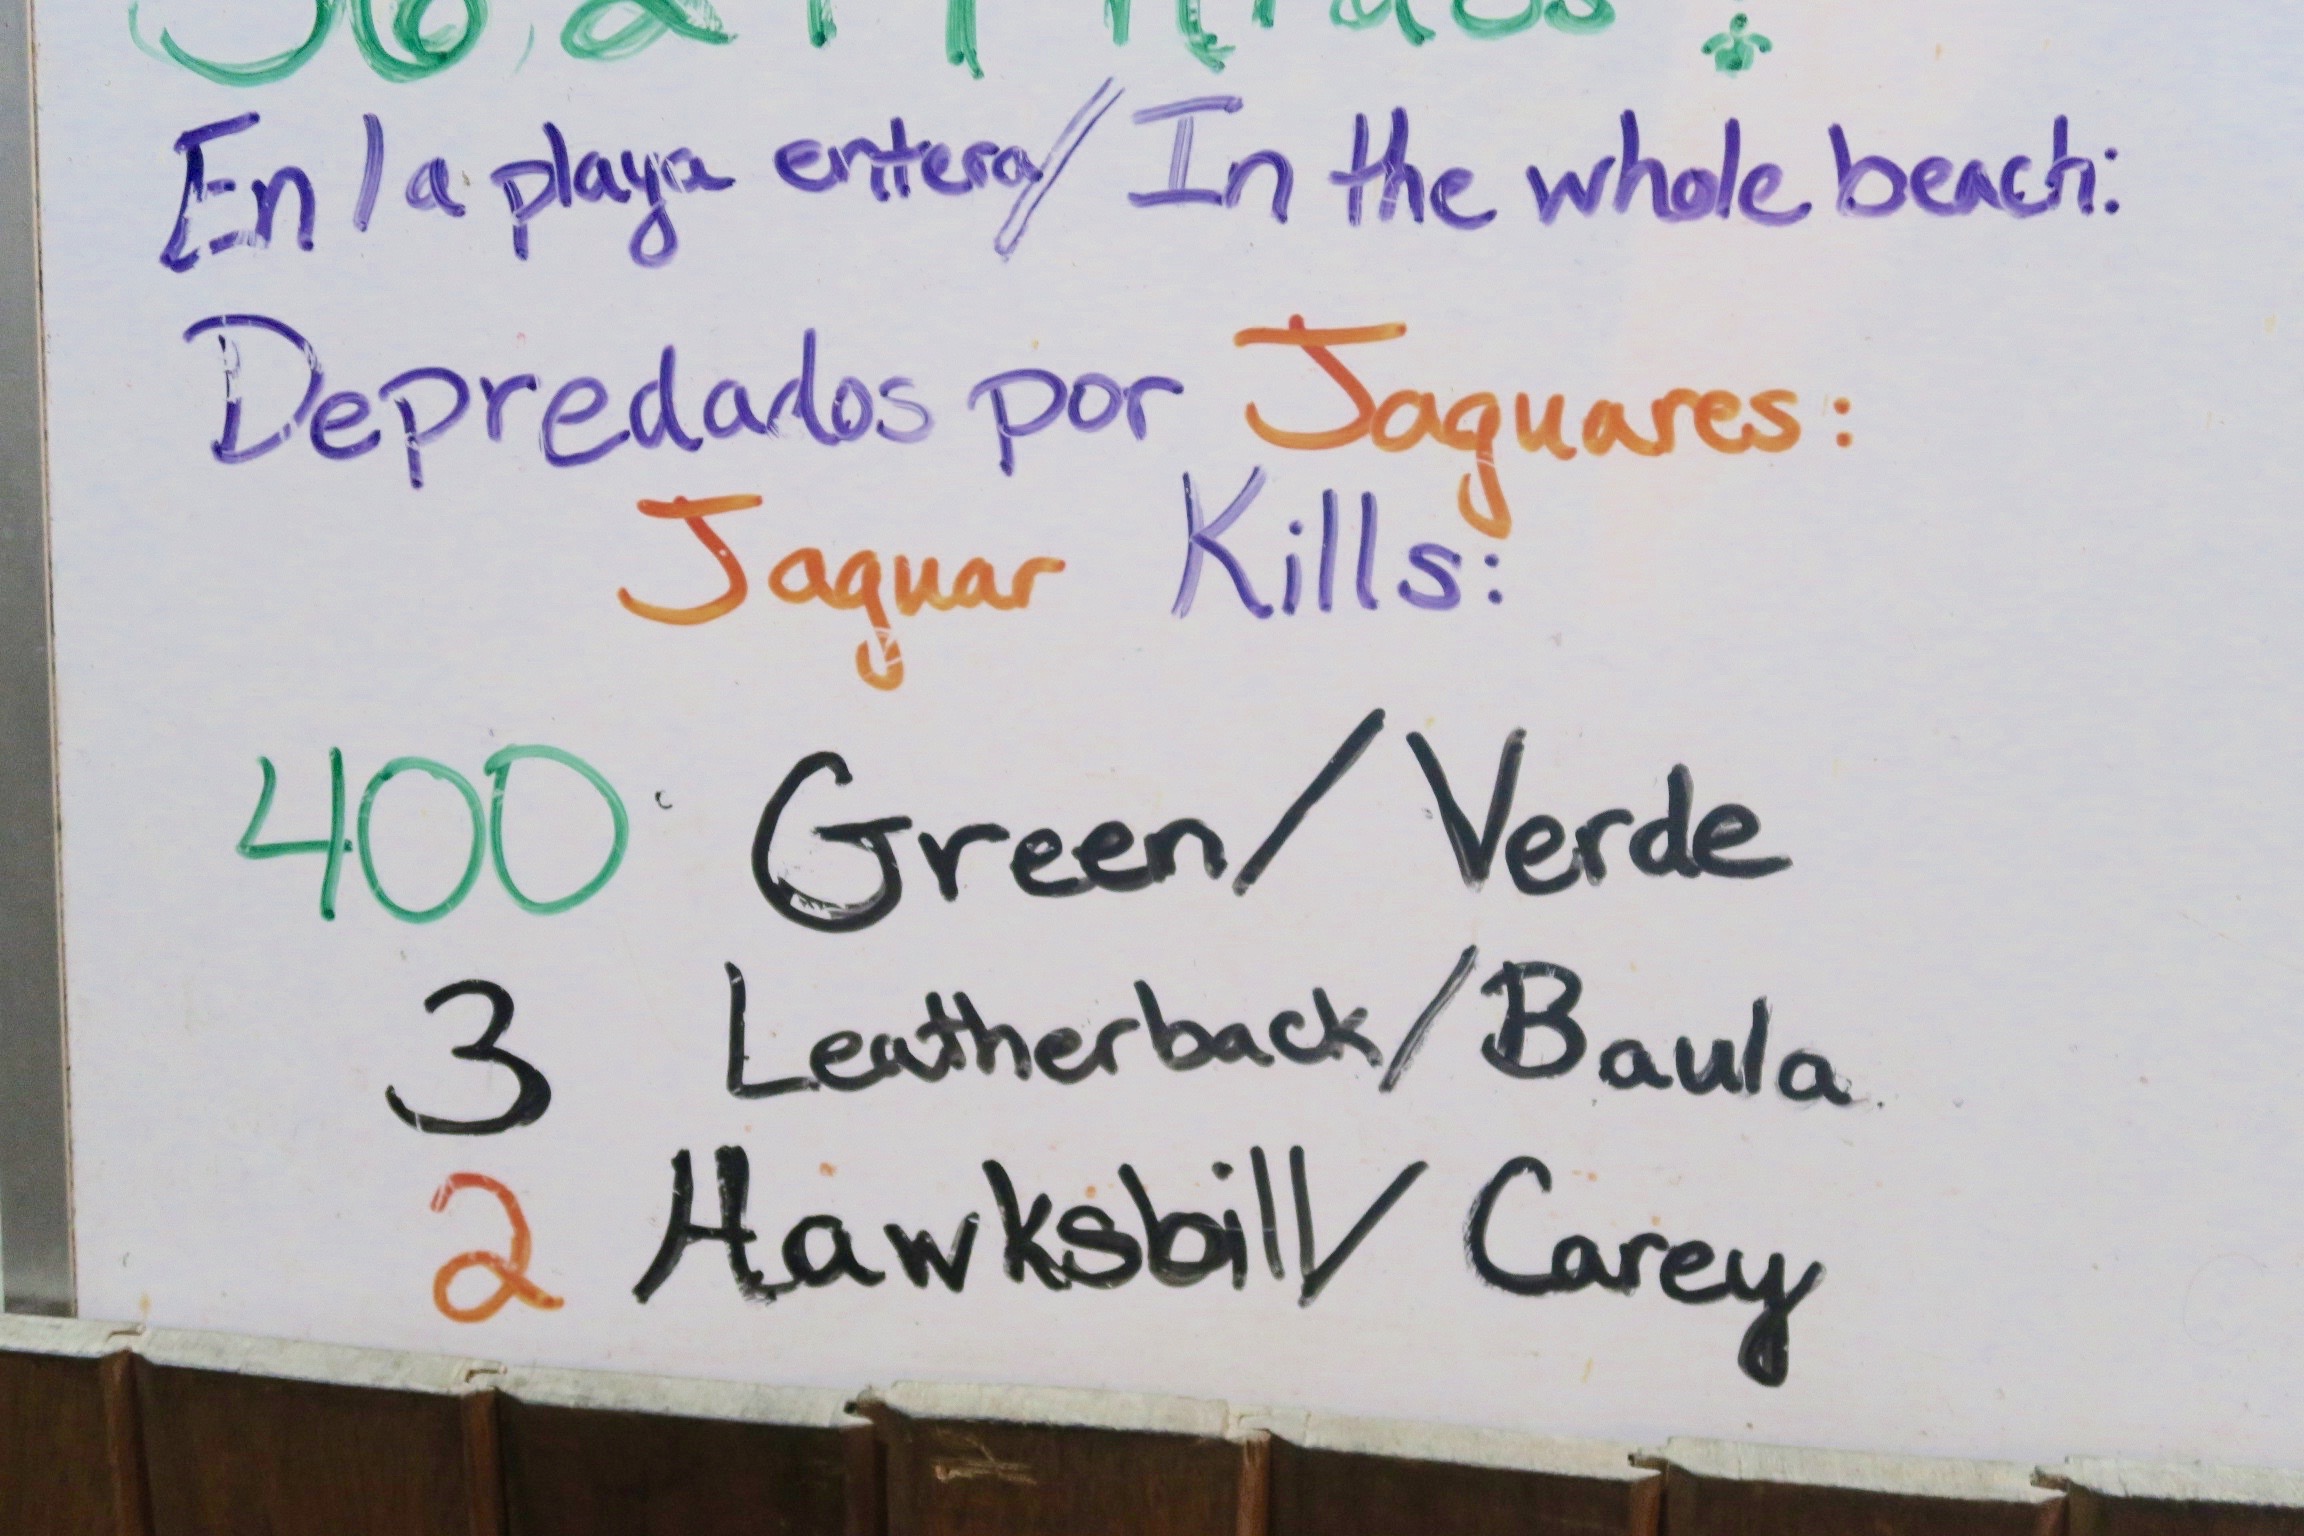 En la playa entera/ In the whole beach:
Depredados por Jaguares:
Jaguar Kills:
400 Green/ Verde
3 Leatherback/ Baula
2 Hawksbill/ Carey